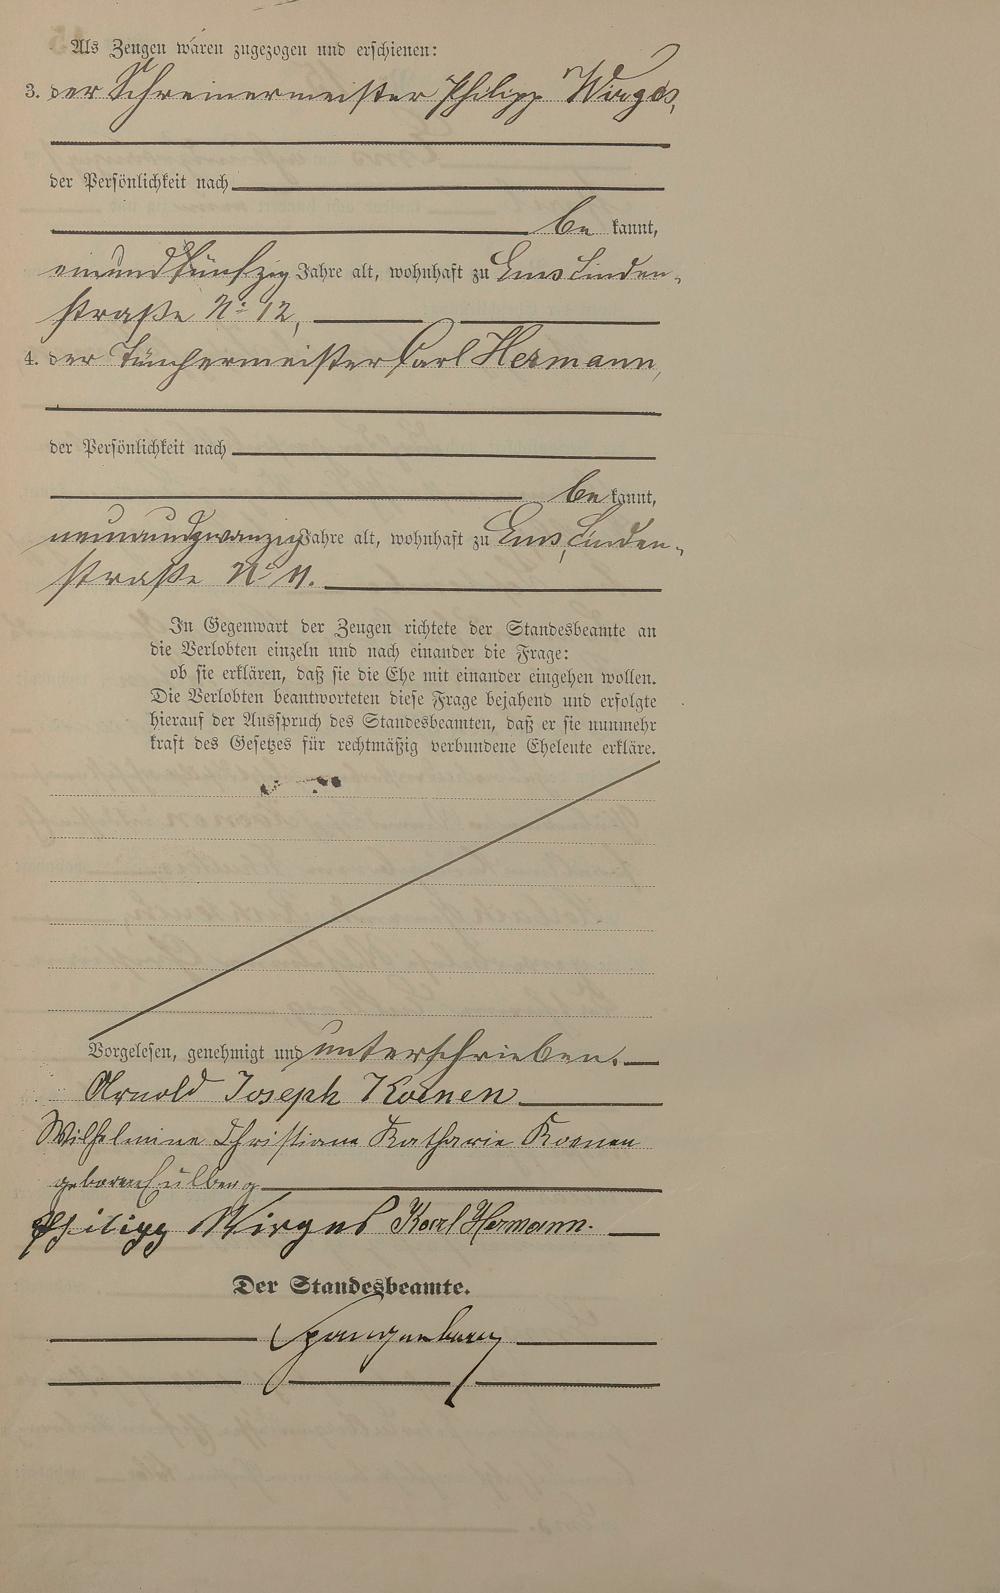 Als Zeugen waren zugezogen und erschienen:
3. der Schreinermeister Philipp Wirges,
der Persönlichkeit nach
be kannt,
einundfünfzig Jahre alt, wohnhaft zu Ems Linden-
straße No 12,
4. der Tünchermeister Carl Hermann,
der Persönlichkeit nach
be kannt,
neunundzwanzig Jahre alt, wohnhaft zu Ems, Linden-
straße No 11.
In Gegenwart der Zeugen richtete der Standesbeamte an
die Verlobten einzeln und nach einander die Frage:
ob sie erklären, daß sie die Ehe mit einander eingehen wollen.
Die Verlobten beantworteten diese Frage bejahend und erfolgte
hierauf der Ausspruch des Standesbeamten, daß er sie nunmehr
kraft des Gesetzes für rechtmäßig verbundene Eheleute erkläre.
Vorgelesen, genehmigt und unterschrieben.
Arnold Joseph Koenen
Wilhelmine Christiane Katharie Koenen
geborene Eulberg
Philipp Wirges Karl Hermann.
Der Standesbeamte.
Spangenberg